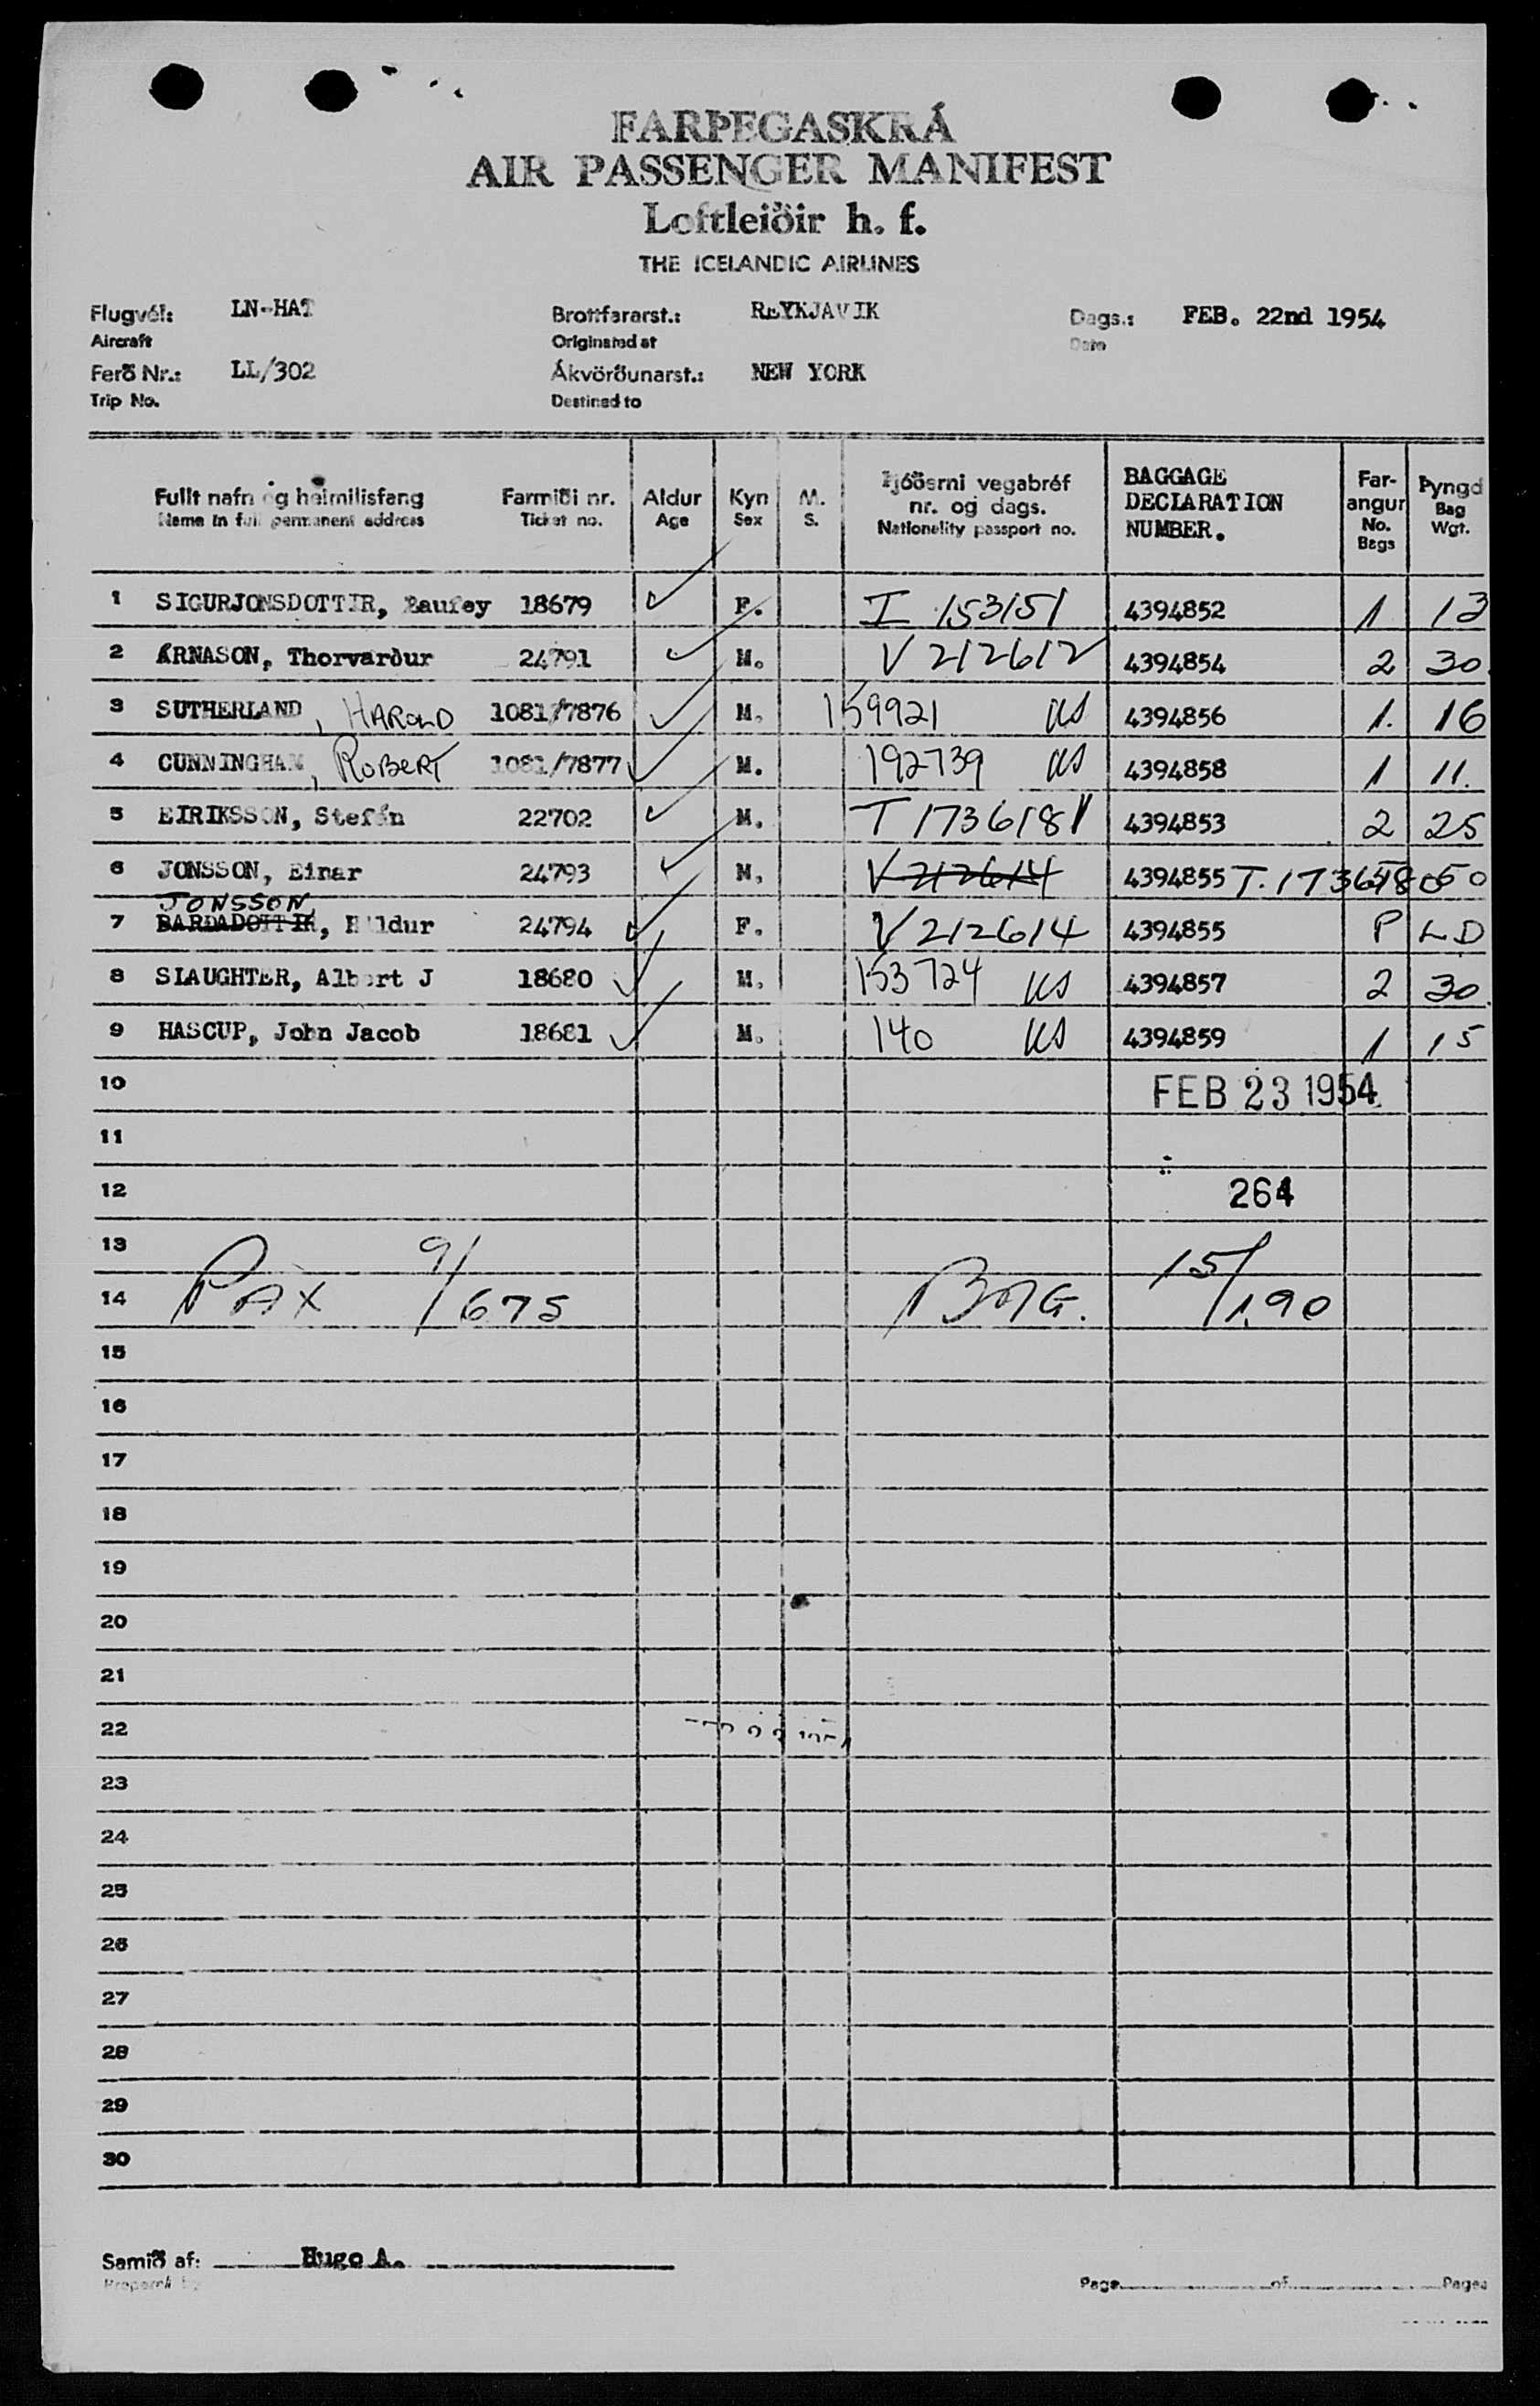 FARÞEGASKRÁ
AIR PASSENGER MANIFEST
Loftleiðir h. f.
THE ICELANDIC AIRLINES
Flugvél: LN-HAT Brottfararst.: REYKJAVIK Dags.: FEB. 22nd 1954
Aircraft Originated at Date
Ferð Nr.: LL/302 Ákvörðunarst.: NEW YORK
Trip No. Destined to
Fullt nafn og heimilisfang Farmiði nr. Aldur Kyn M. Þjóðerni vegabréf nr. og dags. BAGGAGE DECLARATION NUMBER. Far-angur Þyngd
Name in full permanent address Ticket no. Age Sex S. Nationality passport no. No. Bags Bag Wgt.
1 SIGURJONSDOTTIR, Laufey 18679 F. I 153151 4394852 1 13
2 ÁRNASON, Thorvarður 24791 M. V 212612 4394854 2 30.
3 SUTHERLAND, HAROLD 1081/7876 M. 159921 US 4394856 1. 16
4 CUNNINGHAM, ROBERT 1081/7877 M. 192739 US 4394858 1 11.
5 EIRIKSSON, Stefán 22702 M. T 1736181 4394853 2 25
6 JONSSON, Einar 24793 M. V 212614 4394855 50
JONSSON
7 BARDADOTTIR, Hildur 24794 F. V 212614 4394855 P LD
8 SLAUGHTER, Albert J 18680 M. 153724 US 4394857 2 30.
9 HASCUP, John Jacob 18681 M. 140 US 4394859 1 15
10 FEB 23 1954
11
12 264
13
14 PAX 9/675 BAG. 15/190
15
16
17
18
19
20
21
22
23
24
25
26
27
28
29
30
Samið af: Hugo A.
Prepared by Page of Pages